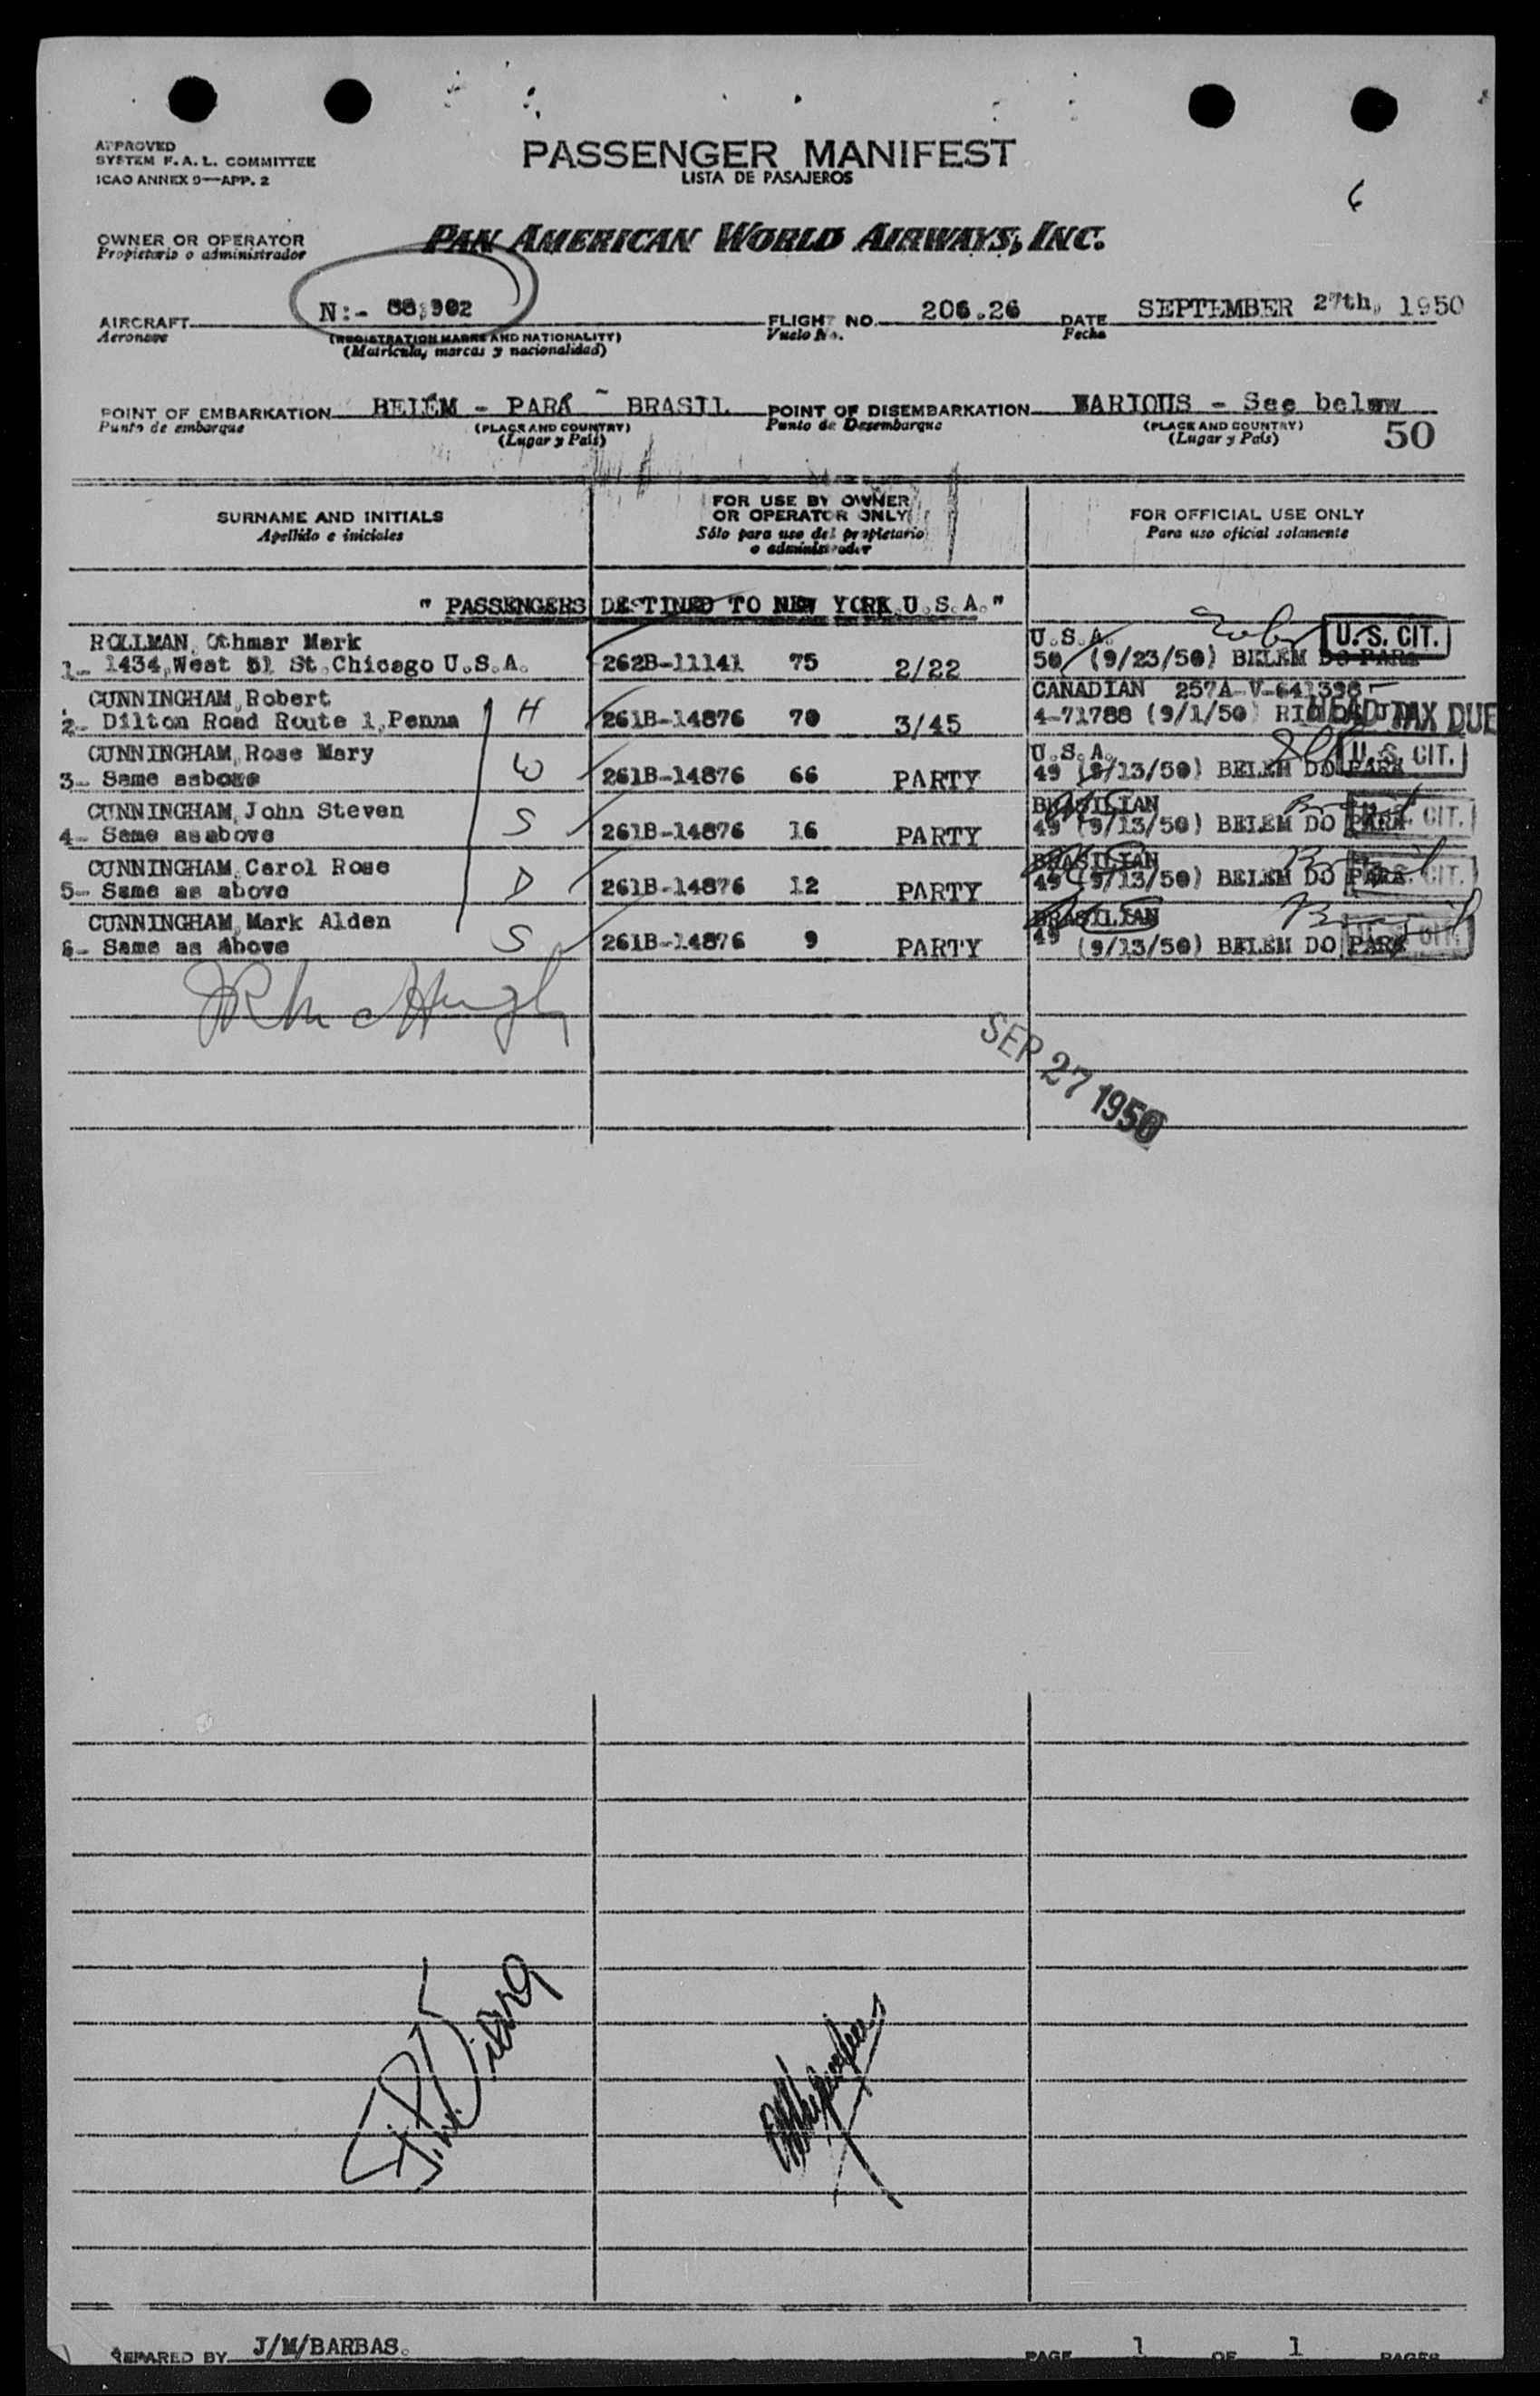 6
APPROVED
SYSTEM F.A.L. COMMITTEE
ICAO ANNEX 9—APP. 2
PASSENGER MANIFEST
LISTA DE PASAJEROS
OWNER OR OPERATOR
Propietario o administrador
PAN AMERICAN WORLD AIRWAYS, INC.
AIRCRAFT N:- 88,902 FLIGHT NO. 206.26 DATE SEPTEMBER 27th, 1950
Aeronave (REGISTRATION MARKS AND NATIONALITY) Vuelo No. Fecha
(Matrícula, marcas y nacionalidad)
POINT OF EMBARKATION BELÉM - PARÁ - BRASIL POINT OF DISEMBARKATION VARIOUS - See below
Punto de embarque (PLACE AND COUNTRY) Punto de Desembarque (PLACE AND COUNTRY)
(Lugar y País) (Lugar y País) 50
SURNAME AND INITIALS
Apellido e iniciales
FOR USE BY OWNER
OR OPERATOR ONLY
Sólo para uso del propietario
o administrador
FOR OFFICIAL USE ONLY
Para uso oficial solamente
" PASSENGERS DESTINED TO NEW YORK U.S.A."
ROLLMAN, Othmar Mark U.S.A. U.S. CIT.
1- 1434, West 51 St. Chicago U.S.A. 262B-11141 75 2/22 50 (9/23/50) BELEM DO PARA
CUNNINGHAM, Robert H CANADIAN 257A-V-641398
2- Dilton Road Route 1, Penna 261B-14876 70 3/45 4-71788 (9/1/50) RIO HEAD TAX DUE
CUNNINGHAM, Rose Mary W U.S.A. U.S. CIT.
3- Same asbove 261B-14876 66 PARTY 49 (9/13/50) BELEM DO PARA
CUNNINGHAM, John Steven S BRASILIAN U.S. CIT.
4- Same as above 261B-14876 16 PARTY 49 (9/13/50) BELEM DO PARA
CUNNINGHAM, Carol Rose D BRASILIAN U.S. CIT.
5- Same as above 261B-14876 12 PARTY 49 (9/13/50) BELEM DO PARA
CUNNINGHAM, Mark Alden S BRASILIAN U.S. CIT.
6- Same as Above 261B-14876 9 PARTY 49 (9/13/50) BELEM DO PARA
JR McHugh
SEP 27 1950
PREPARED BY J/M/BARBAS. PAGE 1 OF 1 PAGES